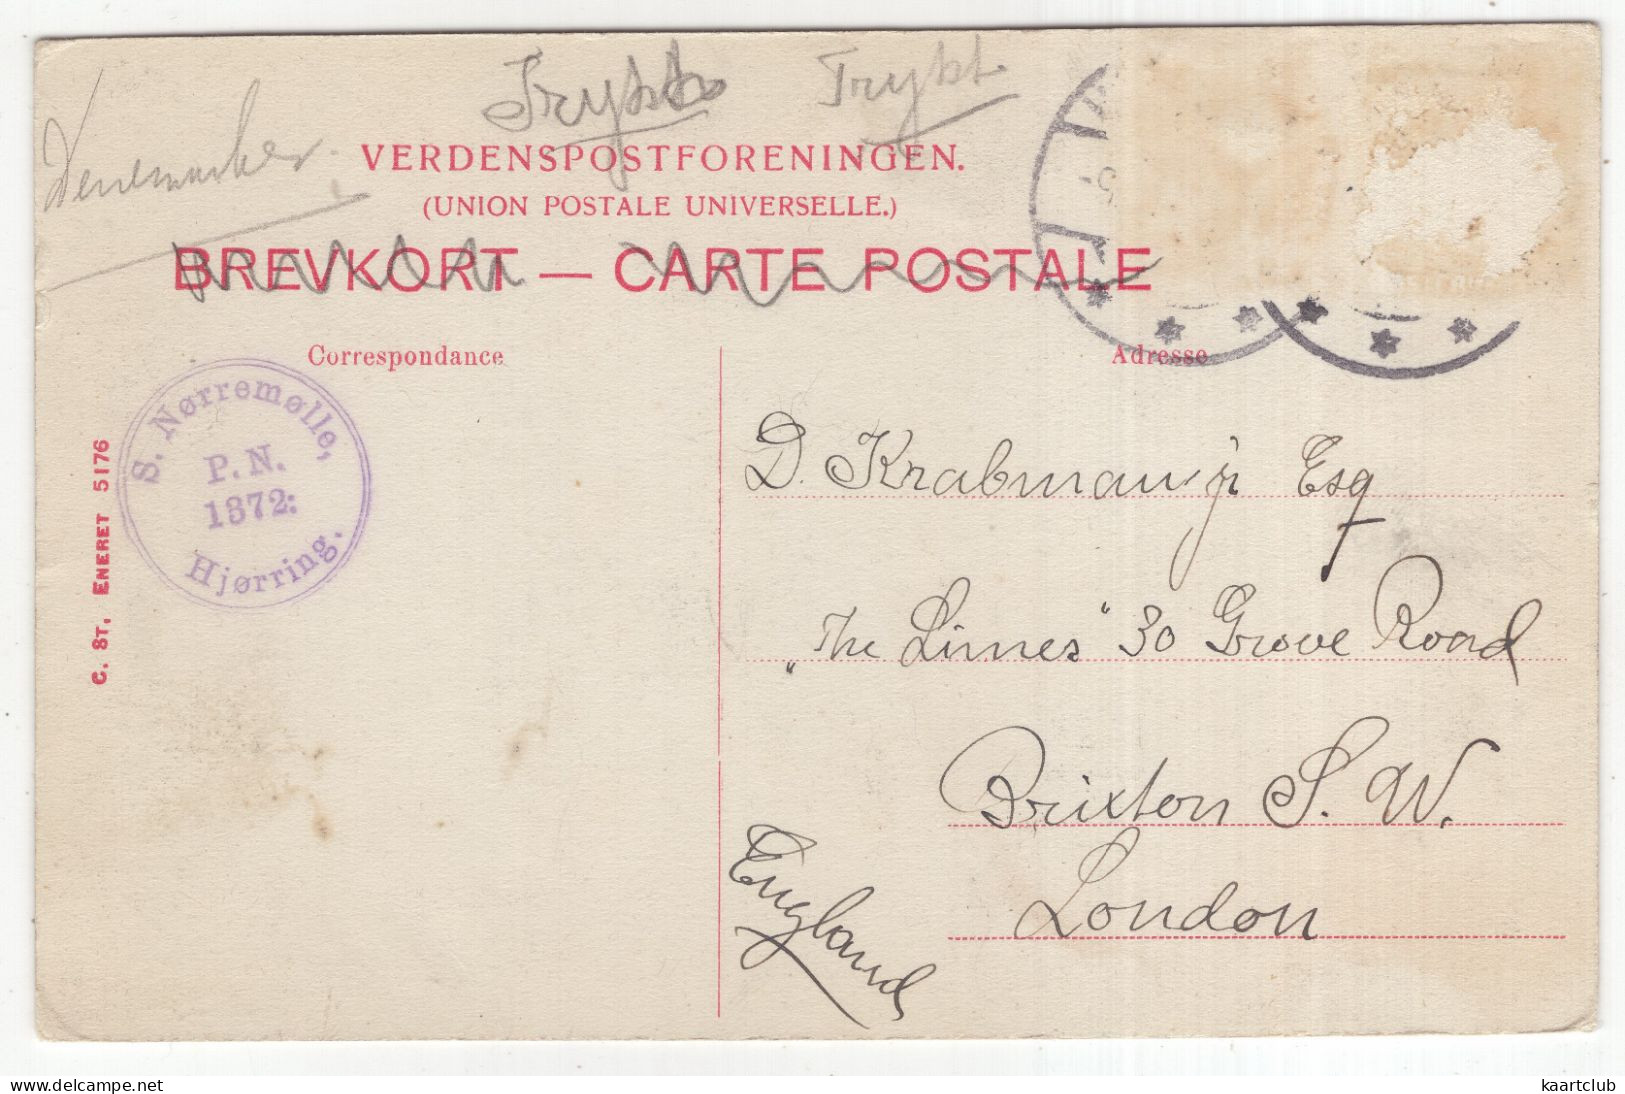 Trykt Trykt
Denemarken.
VERDENSPOSTFORENINGEN.
(UNION POSTALE UNIVERSELLE.)
BREVKORT — CARTE POSTALE
Correspondance
Adresse
S. Nørremølle,
P. N.
1872:
Hjørring.
C. ST. ENERET 5176
D. Krabman jr Esq
"The Limes" 30 Grove Road
Brixton S. W.
London
England
delcampe.net
kaartclub